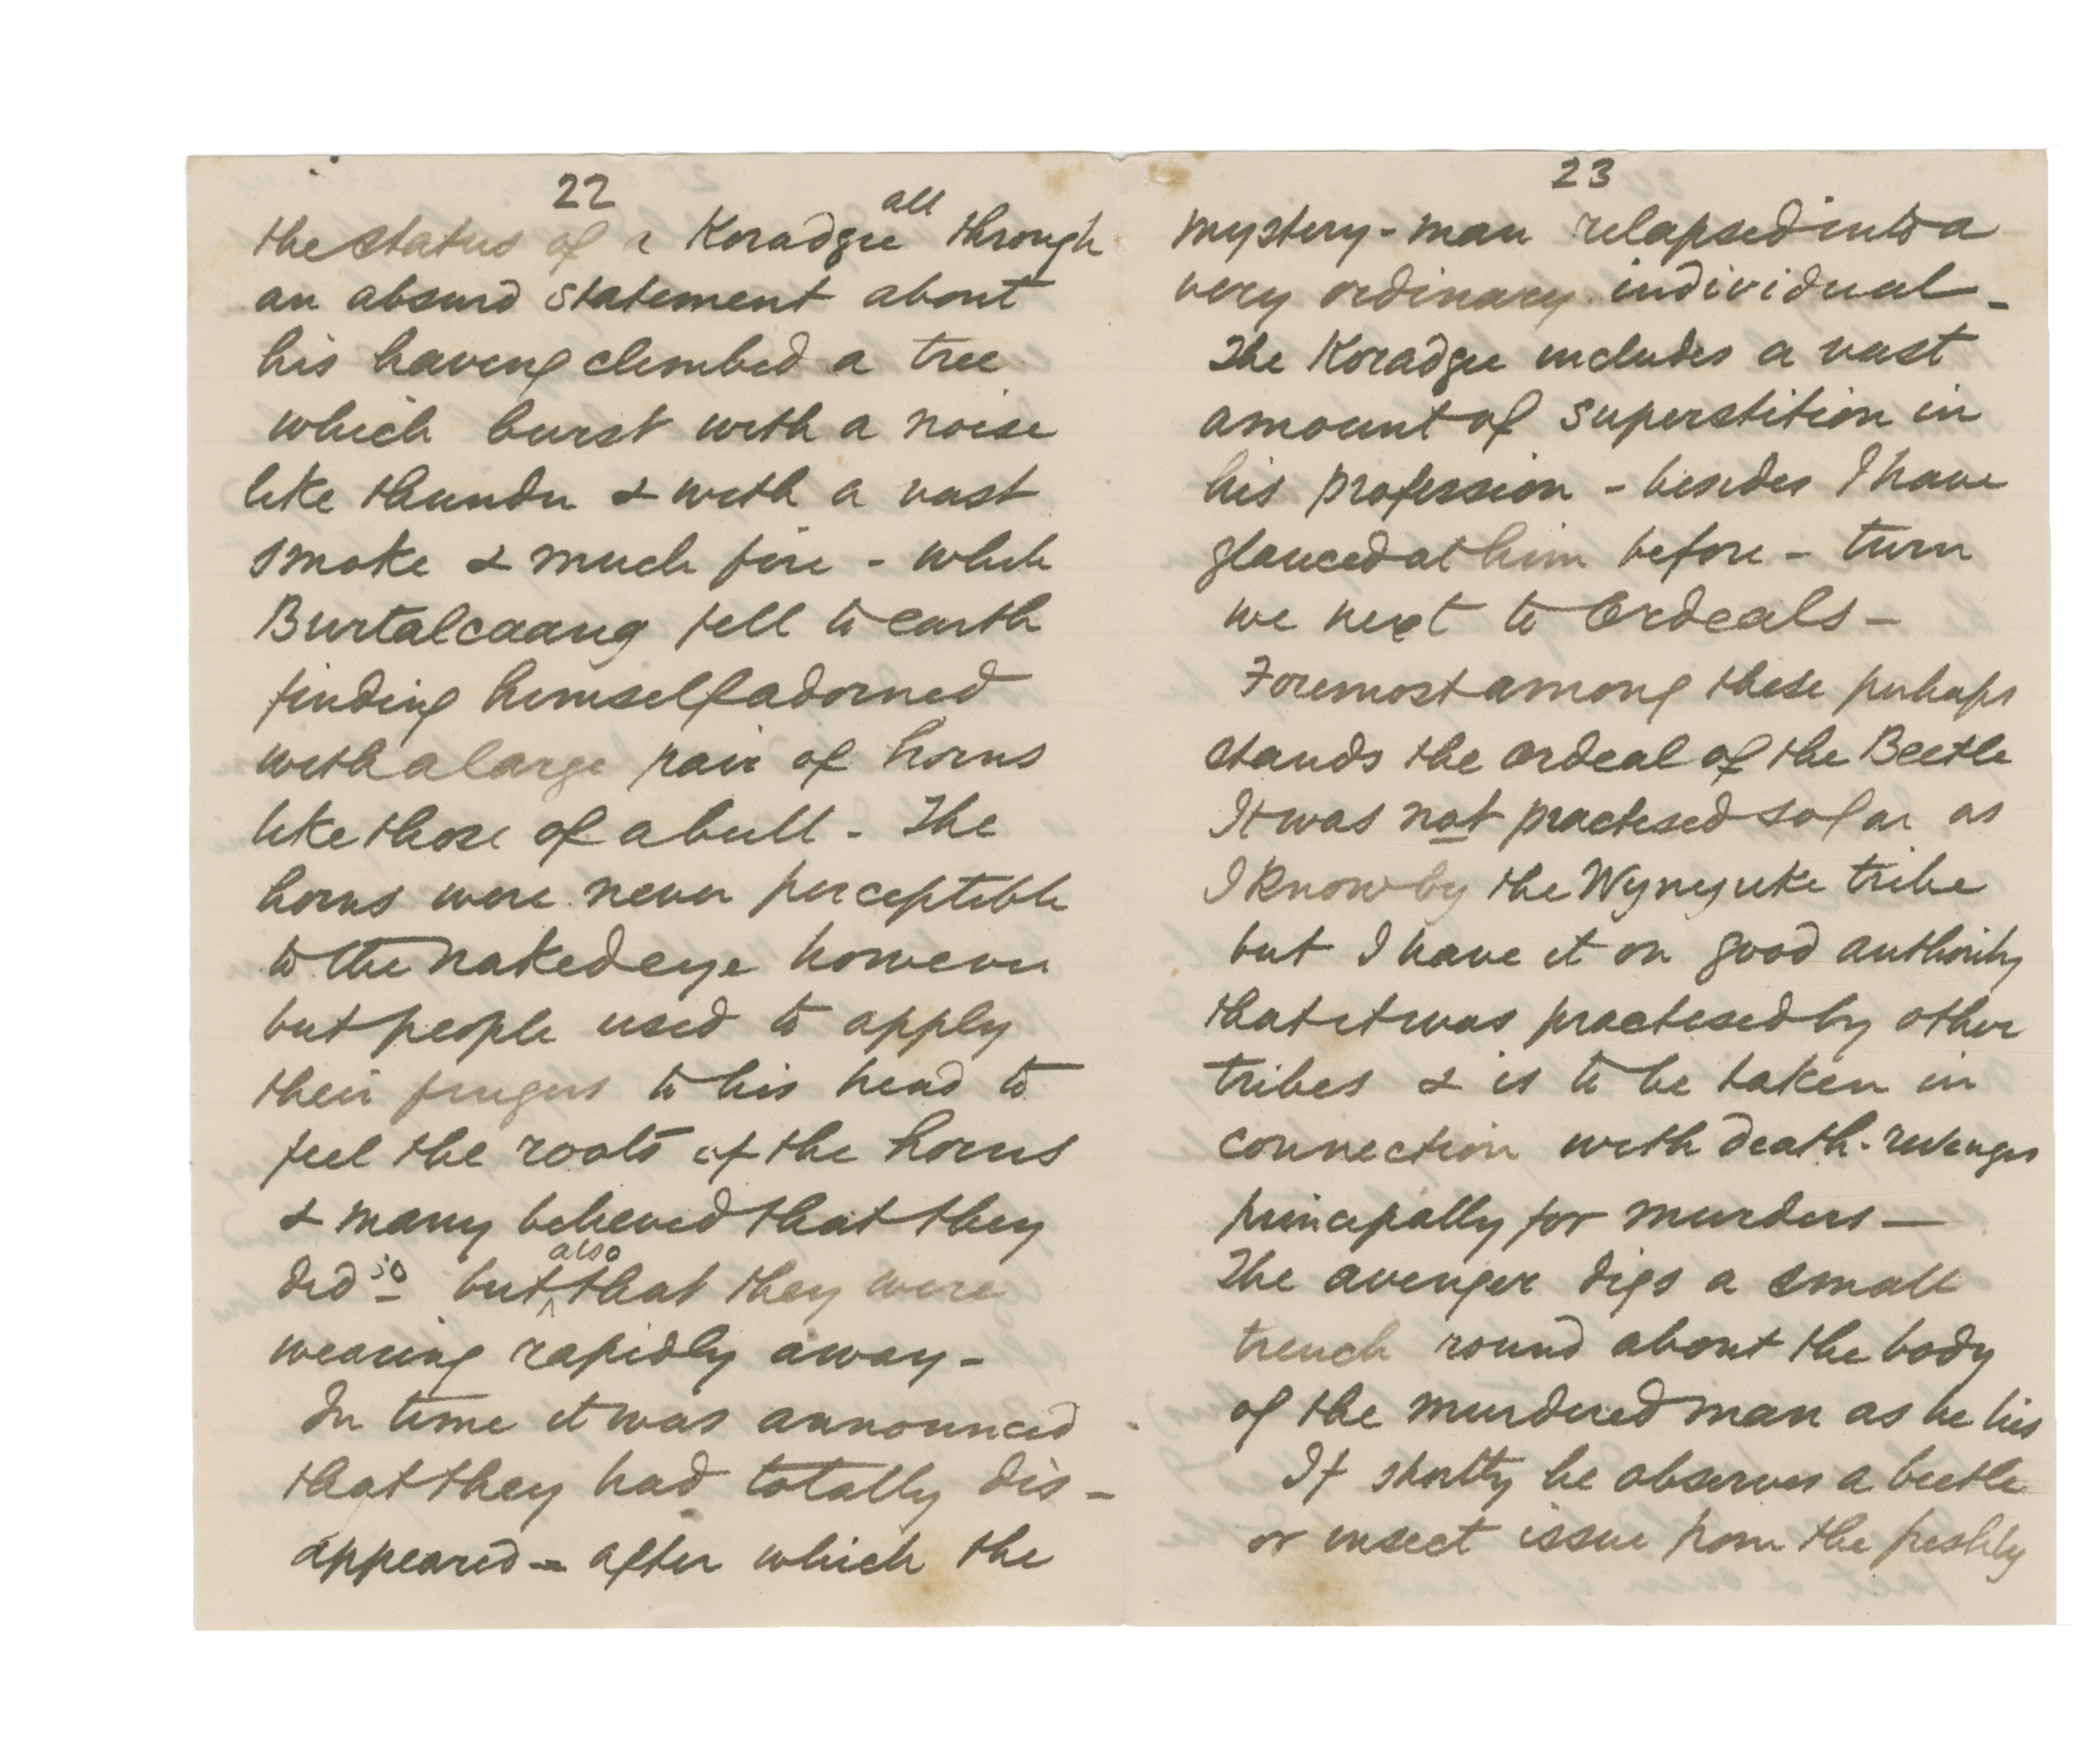 22
the status of a Koradgee all through
an absurd statement about
his having climbed a tree
which burst with a noise
like thunder & with a vast
smoke & much fire - while
Burtalcaang fell to earth
finding himself adorned
with a large pair of horns
like those of a bull - The
horns were never perceptible
to the naked eye however
but people used to apply
their fingers to his head to
feel the roots of the horns
& many believed that they
did so - but also that they were
wearing rapidly away -
In time it was announced
that they had totally dis -
appeared - after which the
23
mystery - man relapsed into a
very ordinary individual -
The Koradgee includes a vast
amount of superstition in
his profession - besides I have
glanced at him before - turn
we next to Ordeals -
Foremost among these perhaps
stands the ordeal of the Beetle
It was not practised so far as
I know by the Wynyuke tribe
but I have it on good authority
that it was practised by other
tribes & is to be taken in
connection with death - revenges
principally for murders -
The avenger digs a small
trench round about the body
of the murdered man as he lies
If shortly he observes a beetle
or insect issue from the freshly